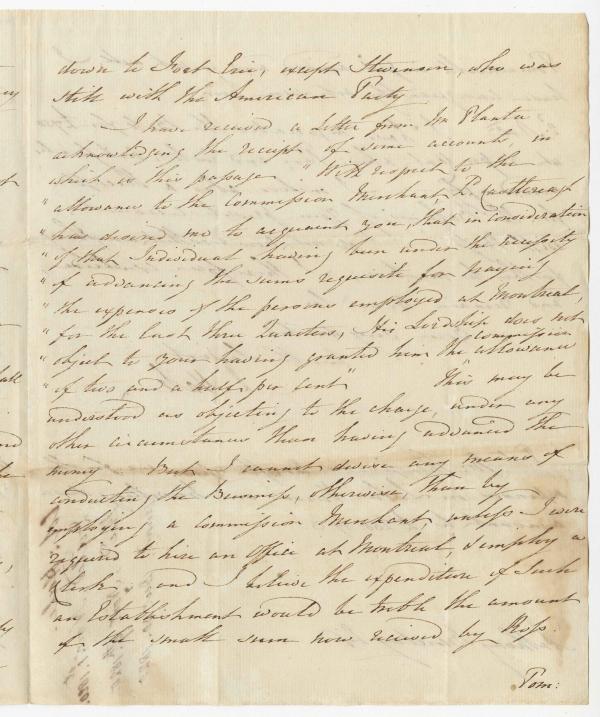 down to Fort Erie, except Stevenson, who was
still with the American Party
I have received a Letter from Mr Planta
acknowledging the receipt of some accounts, in
which is this passage "With respect to the
" allowance to the Commission Merchant, Ld Castlereagh
" has desired me to acquaint you, that in consideration
" of that Individual having been under the necessity
" of advancing the sums requisite for paying
" the expences of the persons employed at Montreal,
" for the last three Quarters, His Lordship does not
" object to your having granted him the commission allowance
" of two and a half per cent" This may be
understood as objecting to the charge, under any
other circumstances than having advanced the
money But I cannot devise any means of
conducting the Business, otherwise, than by
employing a Commission Merchant unless I were
required to hire an Office at Montreal, & employ a
Clerk and I believe the expenditure of such
an Establishment would be treble the amount
of the small sum now received by Ross.
Tom: